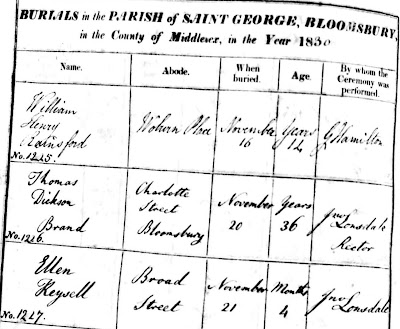 BURIALS in the PARISH of SAINT GEORGE, BLOOMSBURY,
in the County of Middlesex, in the Year 1830
Name. Abode. When buried. Age. By whom the Ceremony was performed.
William Henry Rainsford Woburn Place November 16 Years 14 G Hamilton
No. 1245.
Thomas Dickson Brand Charlotte Street Bloomsbury November 20 Years 36 Jno Lonsdale Rector
No. 1246.
Ellen Heysell Broad Street November 21 Months 4 Jno Lonsdale
No. 1247.